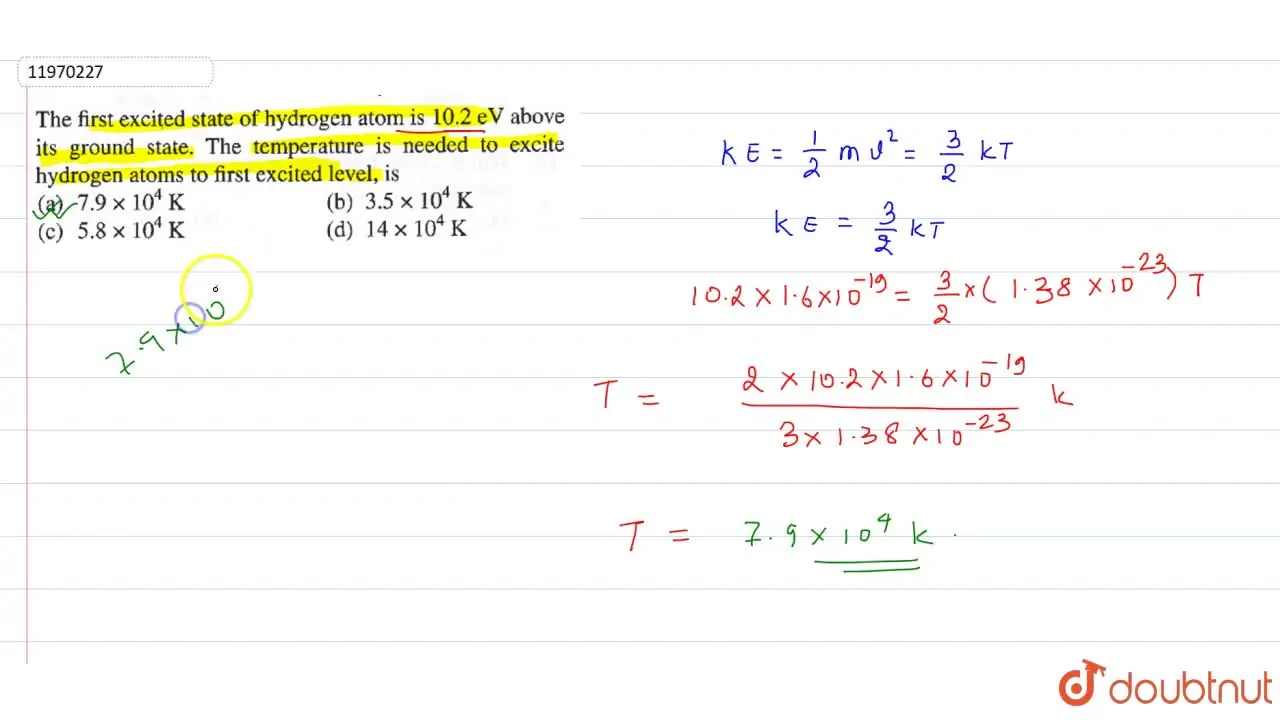 11970227
The first excited state of hydrogen atom is 10.2 eV above
its ground state. The temperature is needed to excite
hydrogen atoms to first excited level, is
(a) 7.9 × 10⁴ K (b) 3.5 × 10⁴ K
(c) 5.8 × 10⁴ K (d) 14 × 10⁴ K
7.9 × 10
KE = 1/2 mv² = 3/2 KT
KE = 3/2 KT
10.2 × 1.6 × 10⁻¹⁹ = 3/2 × (1.38 × 10⁻²³) T
T = 2 × 10.2 × 1.6 × 10⁻¹⁹ / 3 × 1.38 × 10⁻²³ K
T = 7.9 × 10⁴ K
doubtnut